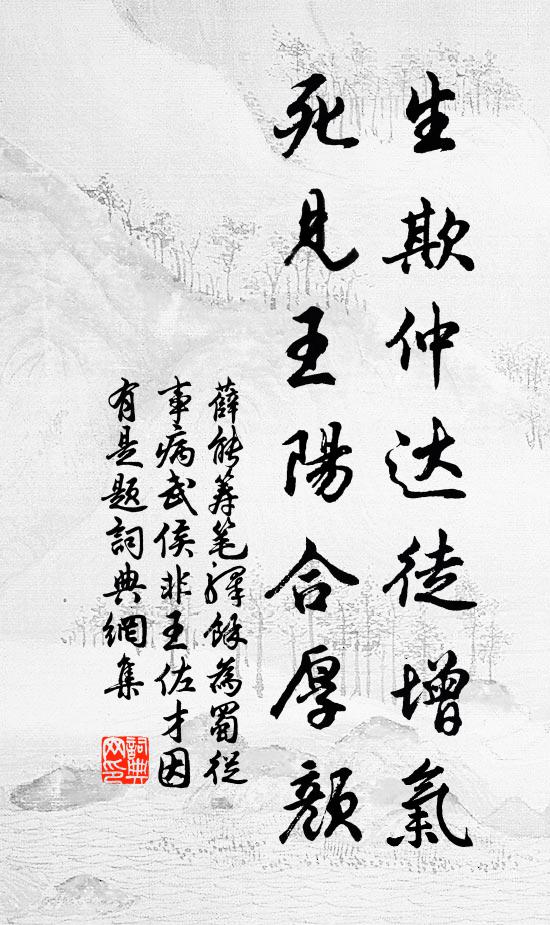 生欺仲达徒增氣
死見王陽合厚顏
薛能籌筆驛餘為蜀從
事病武侯非王佐才因
有是題詞典網集
詞典
网印